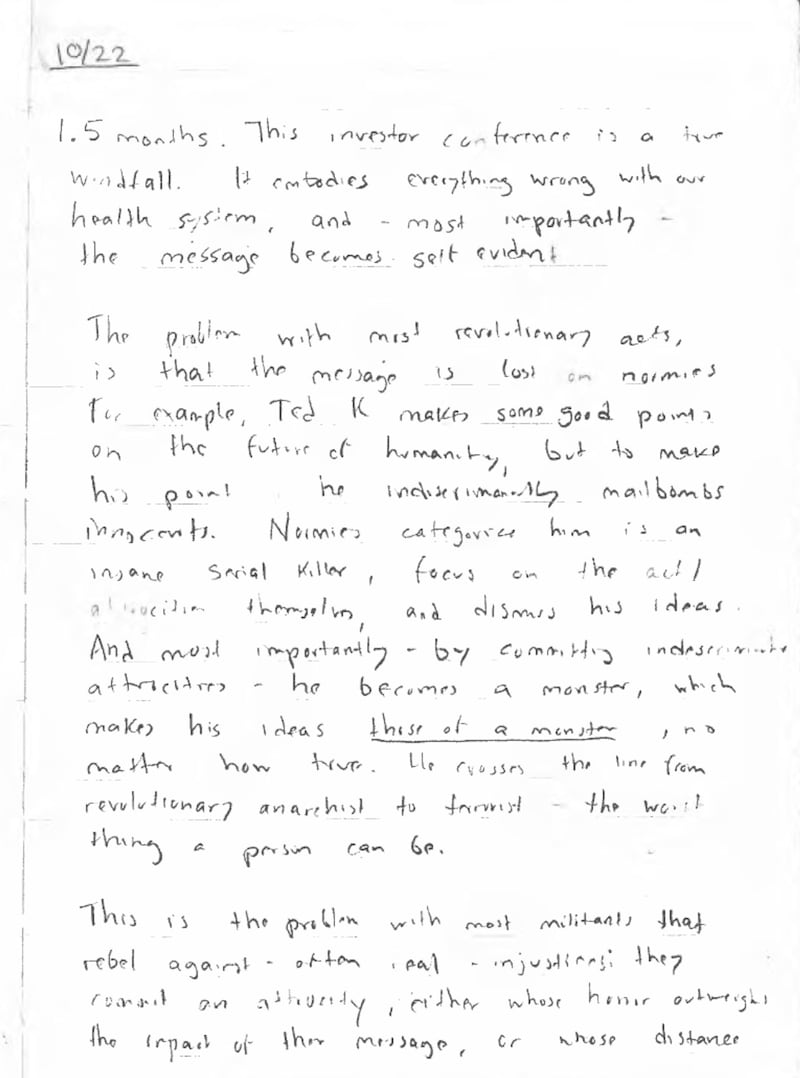 10/22
1.5 months. This investor conference is a true
windfall. It embodies everything wrong with our
health system, and - most importantly -
the message becomes self evident
The problem with most revolutionary acts,
is that the message is lost on normies
For example, Ted K makes some good points
on the future of humanity, but to make
his point he indiscriminantly mailbombs
innocents. Normies categorize him is an
insane serial killer, focus on the act/
themselves, and dismiss his ideas.
And most importantly - by committing indescriminate
attrocities - he becomes a monster, which
makes his ideas those of a monster, no
matter how true. He crosses the line from
revolutionary anarchist to terrorist - the worst
thing a person can be.
This is the problem with most militants that
rebel against - often real - injustices: they
commit an attrocity, either whose horror outweighs
the impact of their message, or whose distance